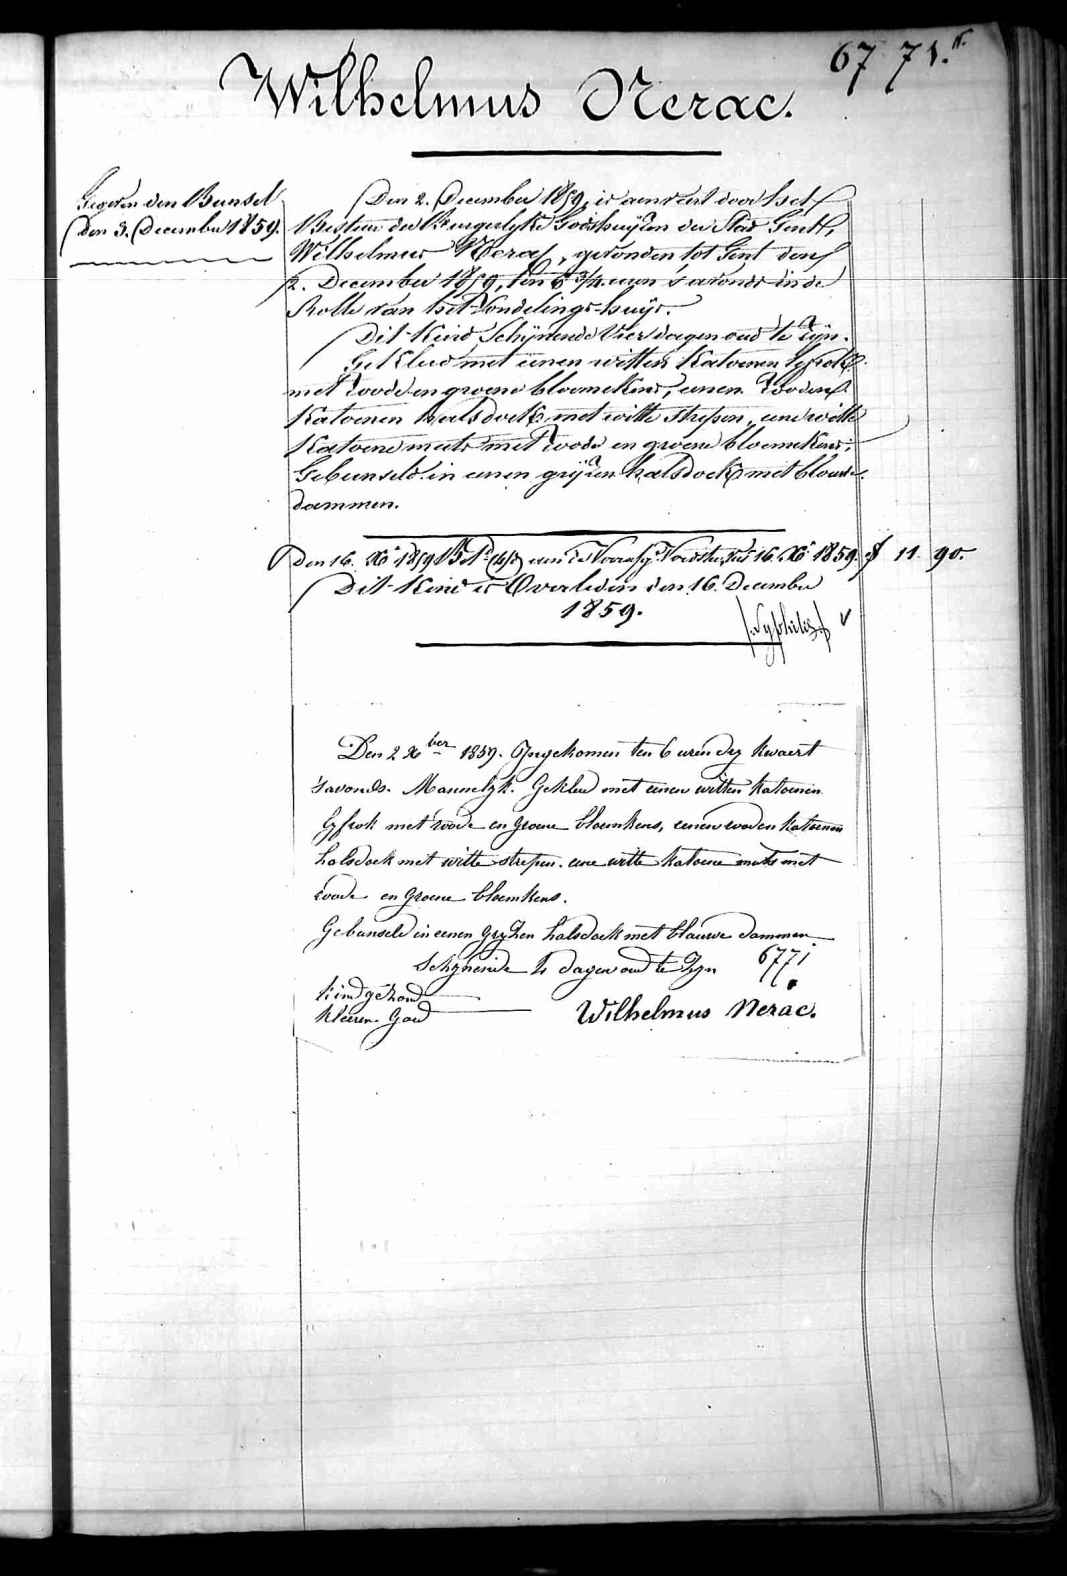 67 71.
Wilhelmus Nerac.
Gegeven den Bunsel
Den 3. December 1859.
Den 2. December 1859, is aenveird door het
Bestuer der Burgerlyke Godshuijzen der Stad Gent,
Wilhelmus Nerac, gevonden tot Gent den
2. December 1859, ten 6 3/4 uren 's avonds in de
Rolle van het Vondelings-huijs.
Dit Kind Schijnende Vier dagen oud te zijn.
Gekleed met eenen witten Katoenen Lyfrok
met roode en groene bloemekens, eenen rooden
Katoenen halsdoek met witte strepen, eene witte
Katoene muts met roode en groene bloemekens;
Gebunseld in eenen grijzen halsdoek met blauwe
dammen.
Den 16. Xe 1859 Bet. aen de Voorsz. Voedster, tot 16. Xe 1859. f 11 90.
Dit Kind is Overleden den 16. December
1859.
/:Syphilis:/
Den 2 Xber 1859. Ingekomen ten 6 uren dry kwaert
's avonds. Mannelyk. Gekleed met eenen witten katoenen
Lyfrok met roode en groene bloemkens, eenen rooden katoenen
halsdoek met witte strepen. eene witte katoene muts met
roode en groene bloemkens.
Gebunseld in eenen gryzen halsdoek met blauwe dammen
Schynende 4 dagen oud te zyn 6771
kind gezond
kleeren Goed Wilhelmus Nerac.